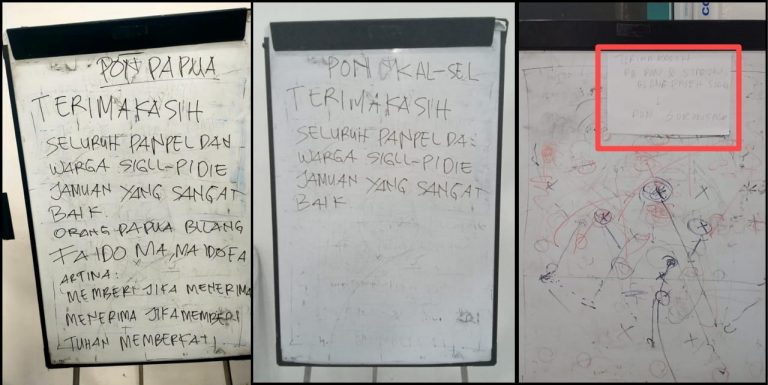 PON PAPUA
TERIMAKASIH
SELURUH PANPEL DAN
WARGA SIGLL-PIDIE
JAMUAN YANG SANGAT
BAIK
ORANG PAPUA BILANG
FAIDO MA, MAIDOFA
ARTINA:
MEMBERI JIKA MENERIMA
MENERIMA JIKA MEMBERI
TUHAN MEMBERKATI
PON KAL-SEL
TERIMAKASIH
SELURUH PANPEL DA:
WARGA SIGLL-PIDIE
JAMUAN YANG SANGAT
BAIK
TERIMAKASIH
PON
CO